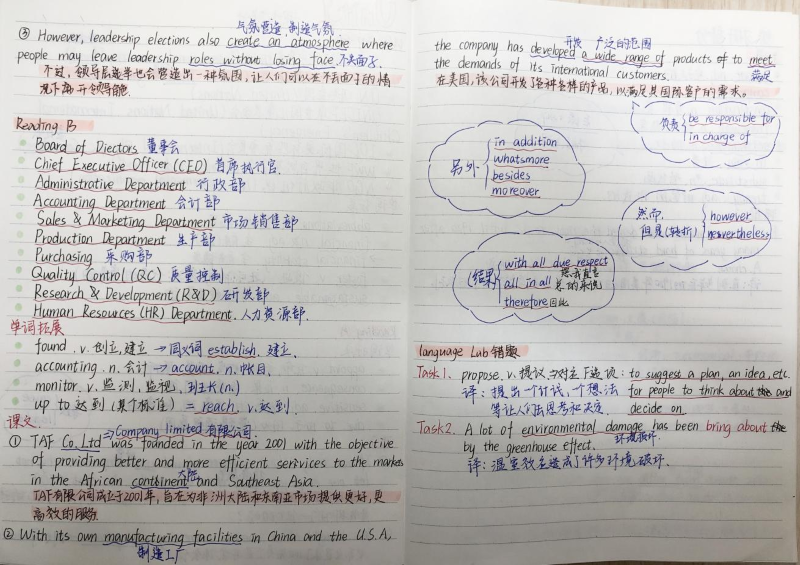 气氛营造,制造气氛
③ However, leadership elections also create an atmosphere where
people may leave leadership roles without losing face. 不失面子.
不过,领导层选举也会营造出一种氛围,让人们可以在不丢面子的情
况下离开领导
Reading B
Board of Diectors 董事会
Chief Executive Officer (CEO) 首席执行官.
Administrative Department 行政部
Accounting Department 会计部
Sales & Marketing Department 市场销售部
Production Department 生产部
Purchasing 采购部
Quality Control (QC) 质量控制
Research & Development (R&D) 研发部
Human Resources (HR) Department. 人力资源部.
单词拓展
found .v. 创立,建立 → 同义词 establish. 建立.
accounting. n. 会计 → account. n. 帐目.
monitor. v. 监测,监视,班长(n.)
up to 达到(某个标准) = reach, v. 达到.
课文.
⇒Company limited 有限公司.
① TAF Co, Ltd was founded in the year 2001 with the objective
of providing better and more efficient services to the markets
in the African continent 大陆 and Southeast Asia.
TAF有限公司成立于2001年,旨在为非洲大陆和东南亚市场提供更好,更
高效的服务.
② With its own manufacturing facilities in China and the U.S.A,
制造工厂
开发 广泛的范围
the company has developed a wide range of products of to meet
the demands of its international customers. 满足
在美国,该公司开发了各种各样的产品,以满足其国际客户的需求。
负责 be responsible for
in charge of
另外 in addition
whatsmore
besides
moreover
然而 however
但是(转折) nevertheless
(结果 with all due respect
all in all 总的来说
therefore 因此
language Lab 错题
Task1. propose. v. 提议 ⇒对应下选项: to suggest a plan, an idea, etc.
译: 提出一个计划,一个想法 for people to think about and
等让人们去思考和决定. decide on.
Task2. A lot of environmental damage has been bring about the
by the greenhouse effect. 环境破坏.
译: 温室效应造成了许多环境破坏.